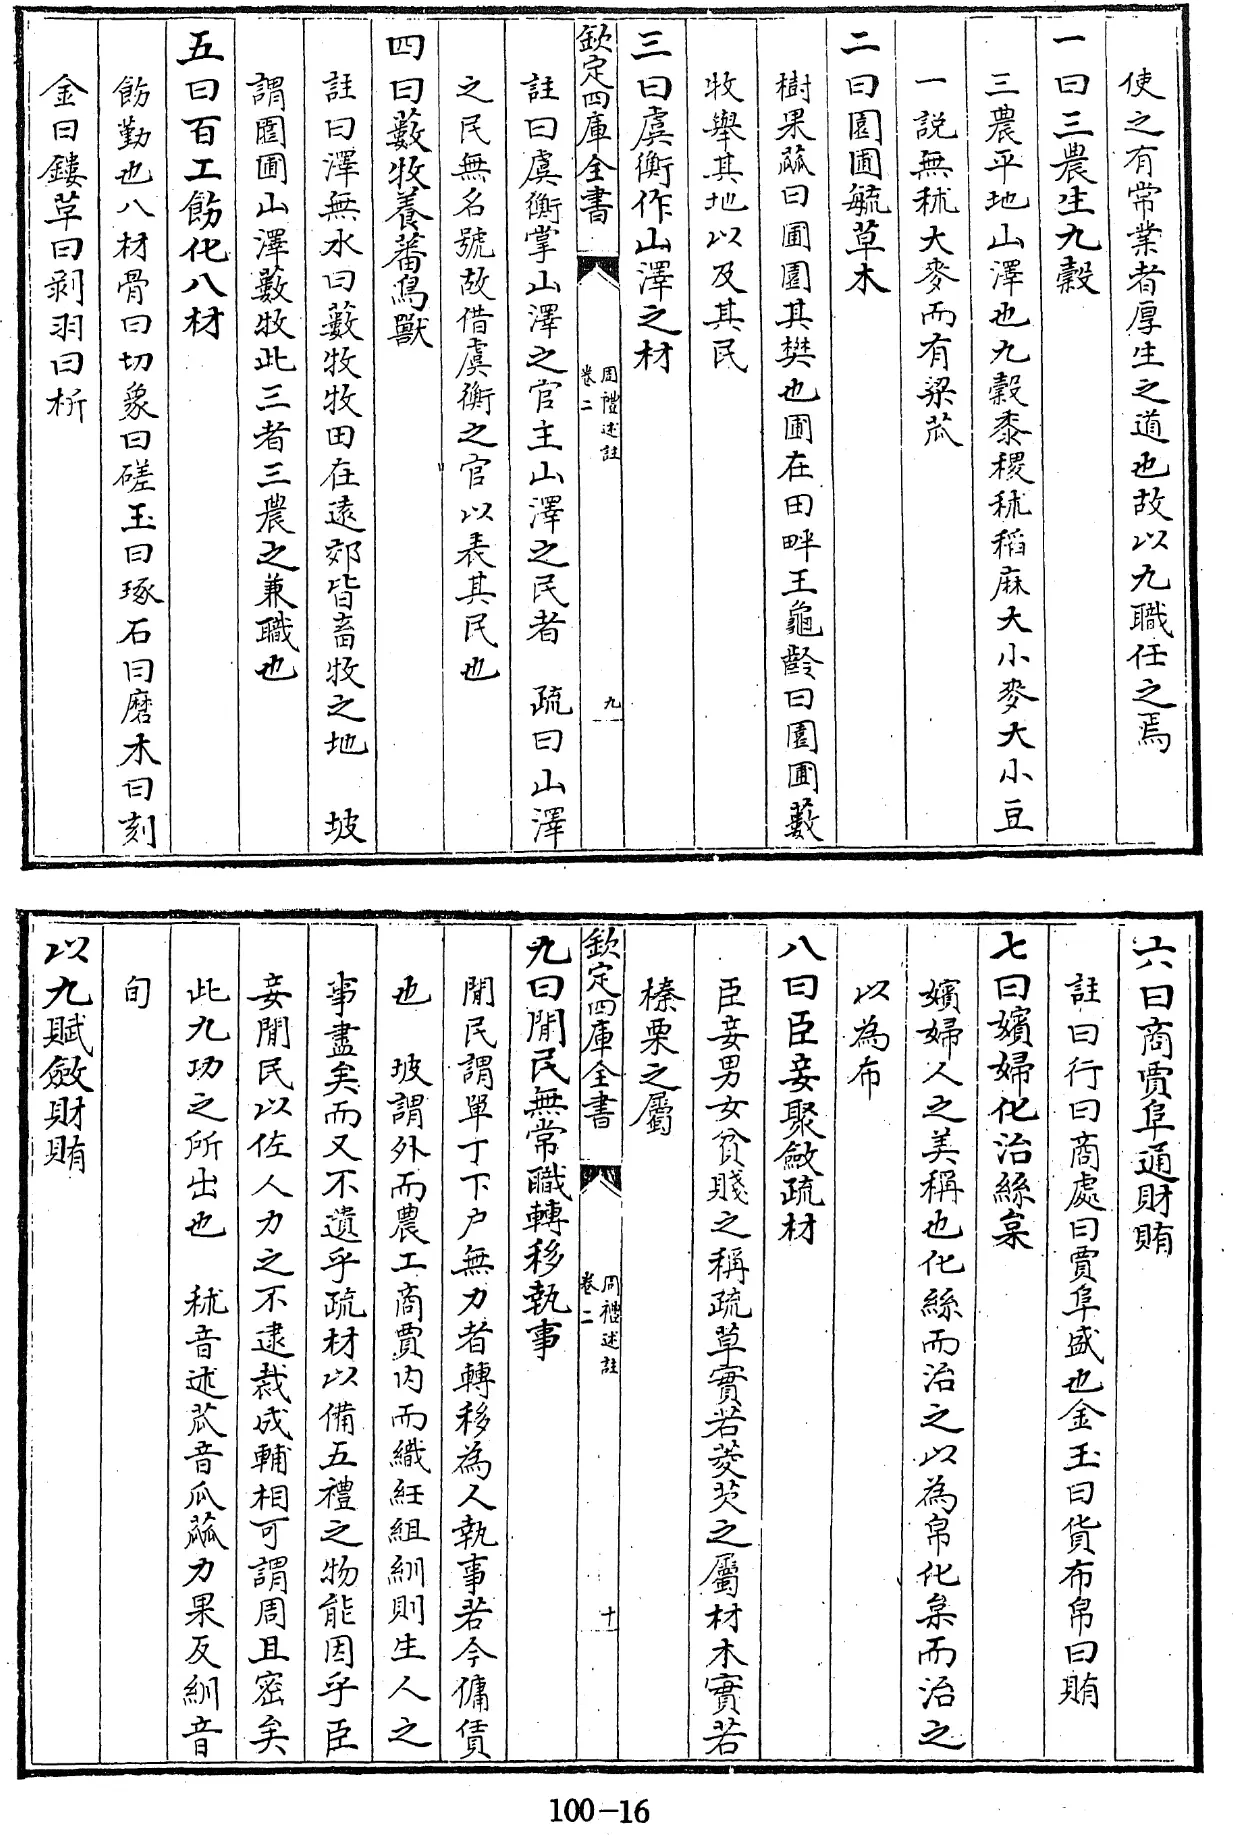 使之有常業者厚生之道也故以九職任之焉
一曰三農生九穀
三農平地山澤也九穀黍稷秫稻麻大小麥大小豆
一説無秫大麥而有粱苽
二曰園圃毓草木
樹果蓏曰圃園其樊也圃在田畔王龜齡曰園圃藪
牧舉其地以及其民
三曰虞衡作山澤之材
欽定四庫全書
周禮述註
卷二
九
註曰虞衡掌山澤之官主山澤之民者 疏曰山澤
之民無名號故借虞衡之官以表其民也
四曰藪牧養蕃鳥獸
註曰澤無水曰藪牧牧田在遠郊皆畜牧之地 坡
謂園圃山澤藪牧此三者三農之兼職也
五曰百工飭化八材
飭勤也八材骨曰切象曰磋玉曰琢石曰磨木曰刻
金曰鏤草曰剥羽曰析
六曰商賈阜通財賄
註曰行曰商處曰賈阜盛也金玉曰貨布帛曰賄
七曰嬪婦化治絲枲
嬪婦人之美稱也化絲而治之以為帛化枲而治之
以為布
八曰臣妾聚斂疏材
臣妾男女貧賤之稱疏草實若菱芡之屬材木實若
榛栗之屬
欽定四庫全書
周禮述註
卷二
十
九曰閒民無常職轉移執事
閒民謂單丁下户無力者轉移為人執事若今傭賃
也 坡謂外而農工商賈内而織紝組紃則生人之
事盡矣而又不遺乎疏材以備五禮之物能因乎臣
妾閒民以佐人力之不逮裁成輔相可謂周且密矣
此九功之所出也 秫音述苽音瓜蓏力果反紃音
旬
以九賦斂財賄
100-16